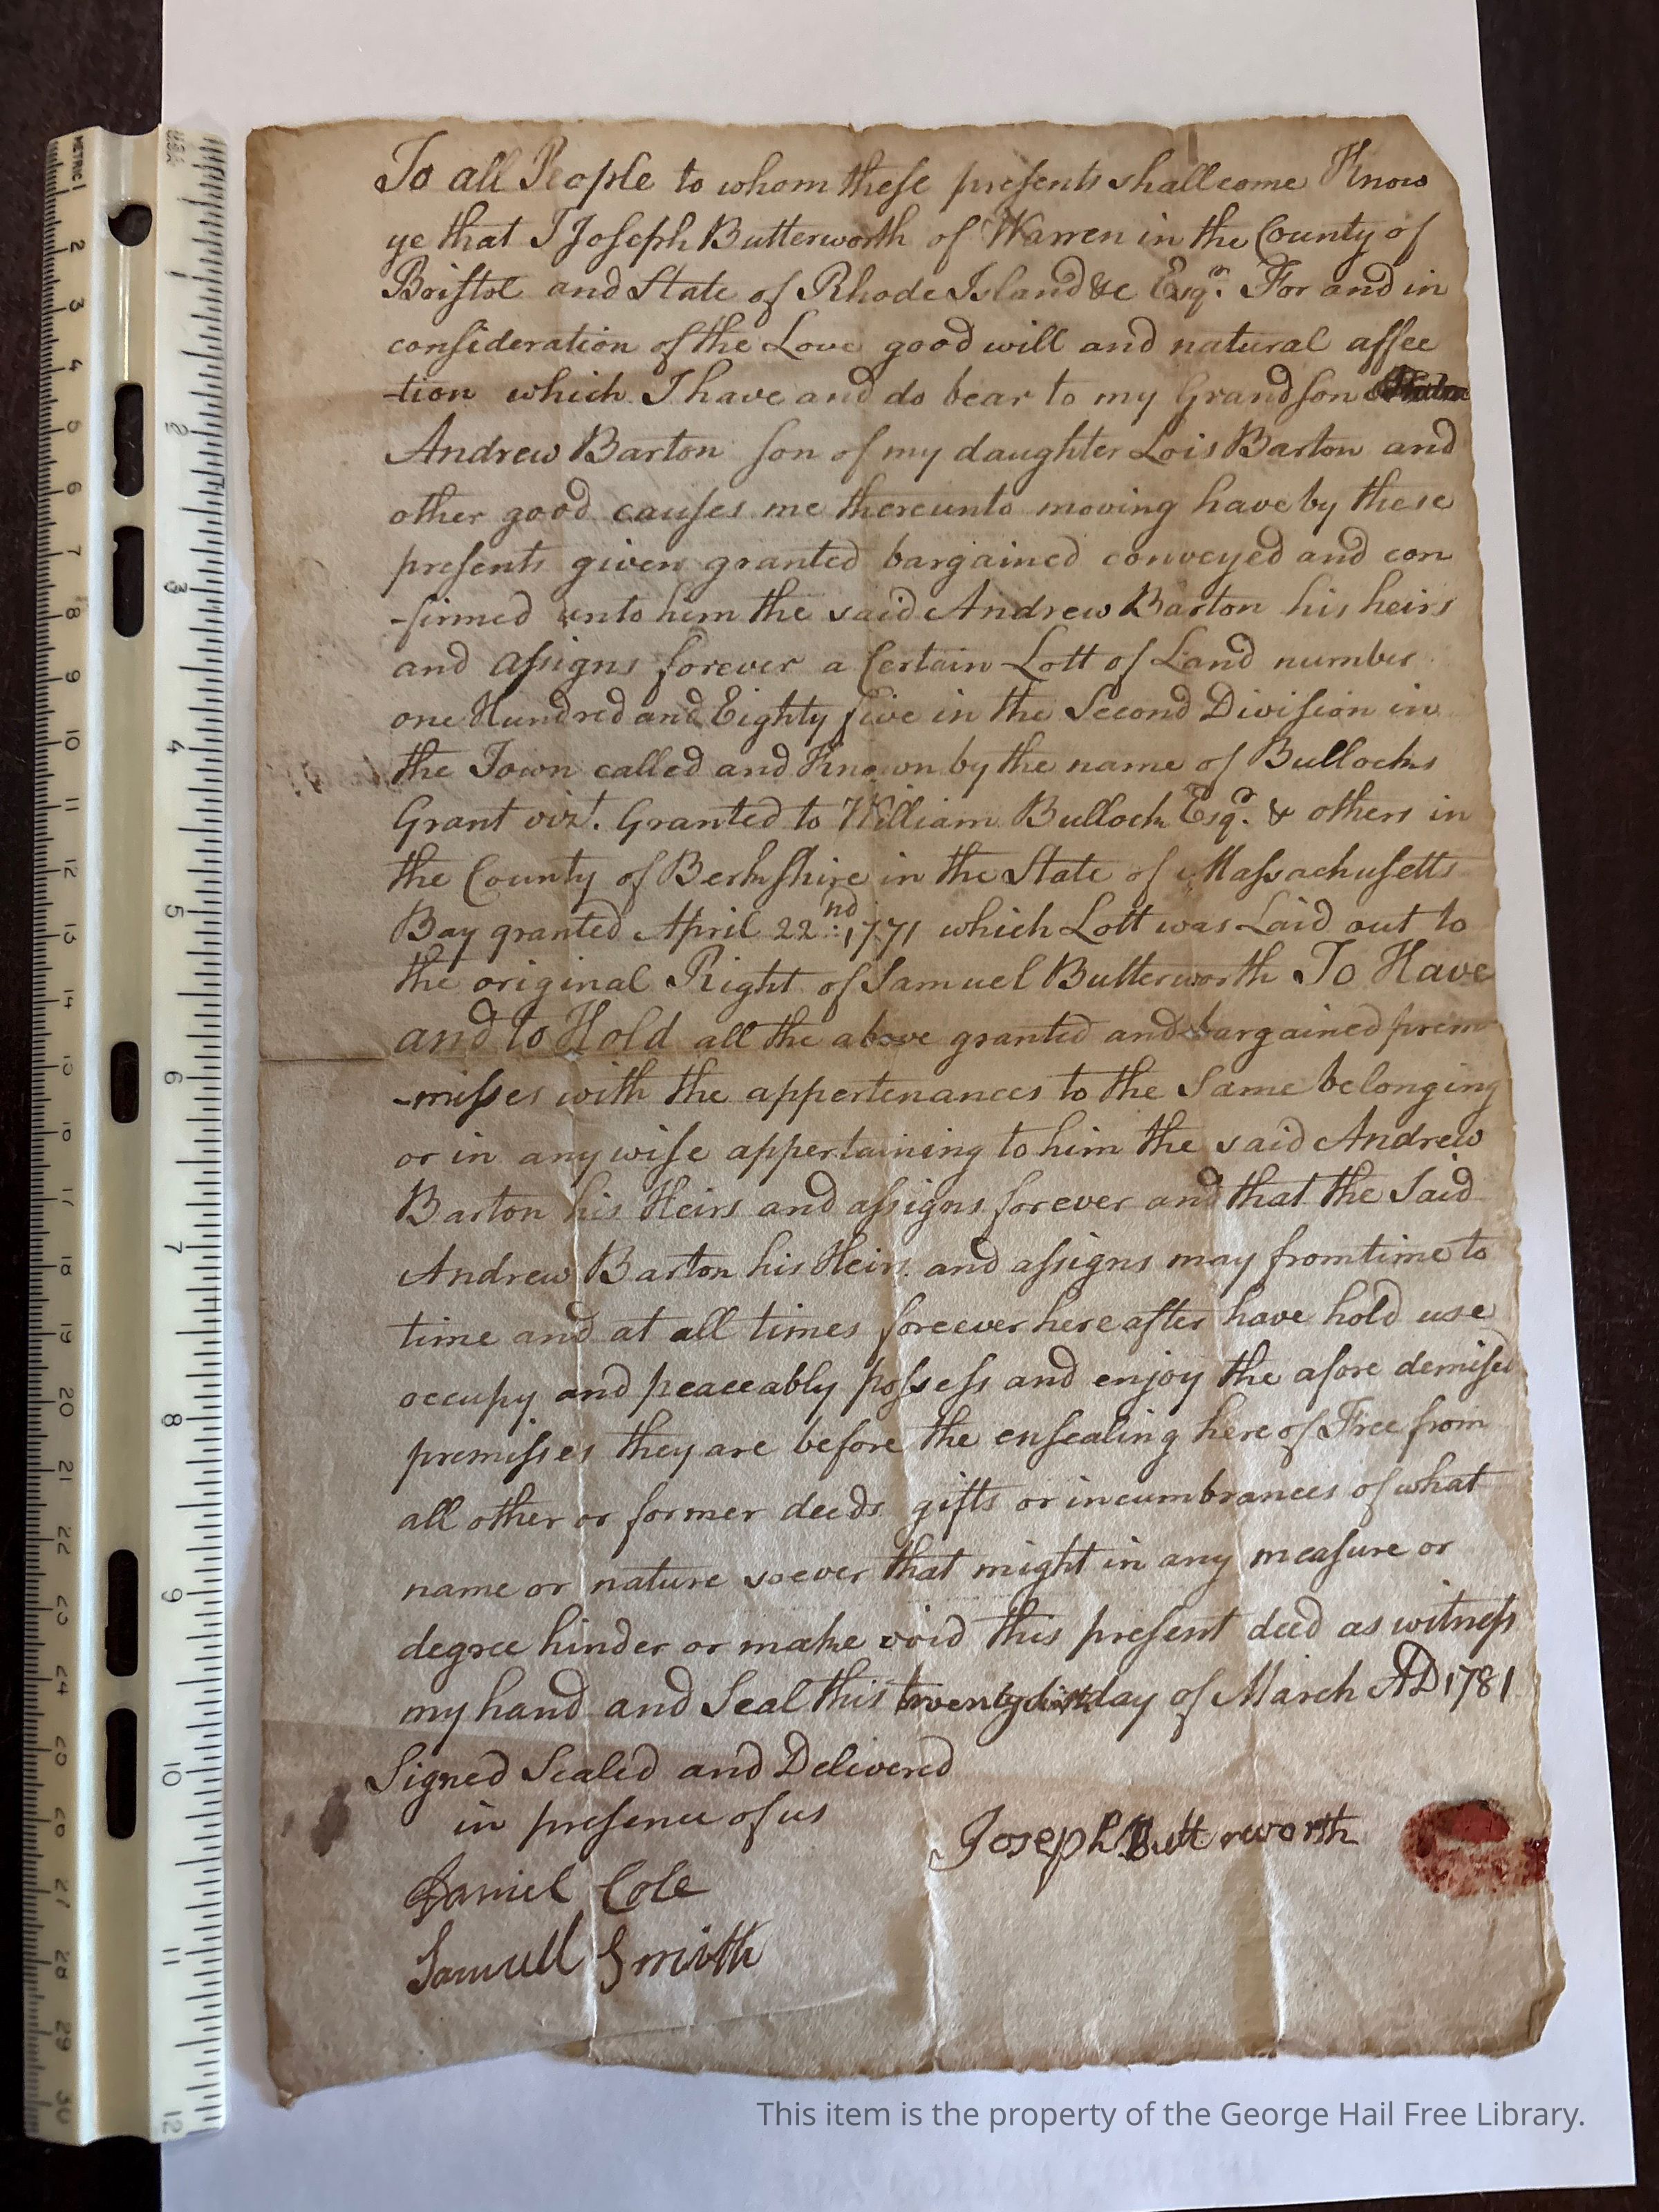 To all People to whom these presents shall come Know
ye that I Joseph Butterworth of Warren in the County of
Bristol and State of Rhode Island &c Esqr. For and in
consideration of the Love good will and natural affec
-tion which I have and do bear to my Grandson
Andrew Barton son of my daughter Lois Barton and
other good causes me thereunto moving have by these
presents given granted bargained conveyed and con
-firmed unto him the said Andrew Barton his heirs
and assigns forever a Certain Lott of Land number
one Hundred and Eighty five in the Second Division in
the Town called and Known by the name of Bullocks
Grant vizt. Granted to William Bullock Esqr. & others in
the County of Berkshire in the State of Massachusetts
Bay granted April 22nd: 1771 which Lott was Laid out to
the original Right of Samuel Butterworth To Have
and to Hold all the above granted and bargained prem
-misses with the appertenances to the Same belonging
or in any wise appertaining to him the said Andrew
Barton his Heirs and assigns forever and that the Said
Andrew Barton his Heirs and assigns may from time to
time and at all times foreever hereafter have hold use
occupy and peaceably possess and enjoy the afore demised
premisses they are before the ensealing hereof Free from
all other or former deeds gifts or incumbrances of what
name or nature soever that might in any measure or
degree hinder or make void this present deed as witness
my hand and Seal this day of March AD 1781
Signed Sealed and Delivered
in presence of us
Joseph Butterworth
Daniel Cole
Samuell Smith
This item is the property of the George Hail Free Library.
METRIC 1 2 3 4 5 6 7 8 9 10 11 12 13 14 15 16 17 18 19 20 21 22 23 24 25 26 27 28 29 30
USA 1 2 3 4 5 6 7 8 9 10 11 12